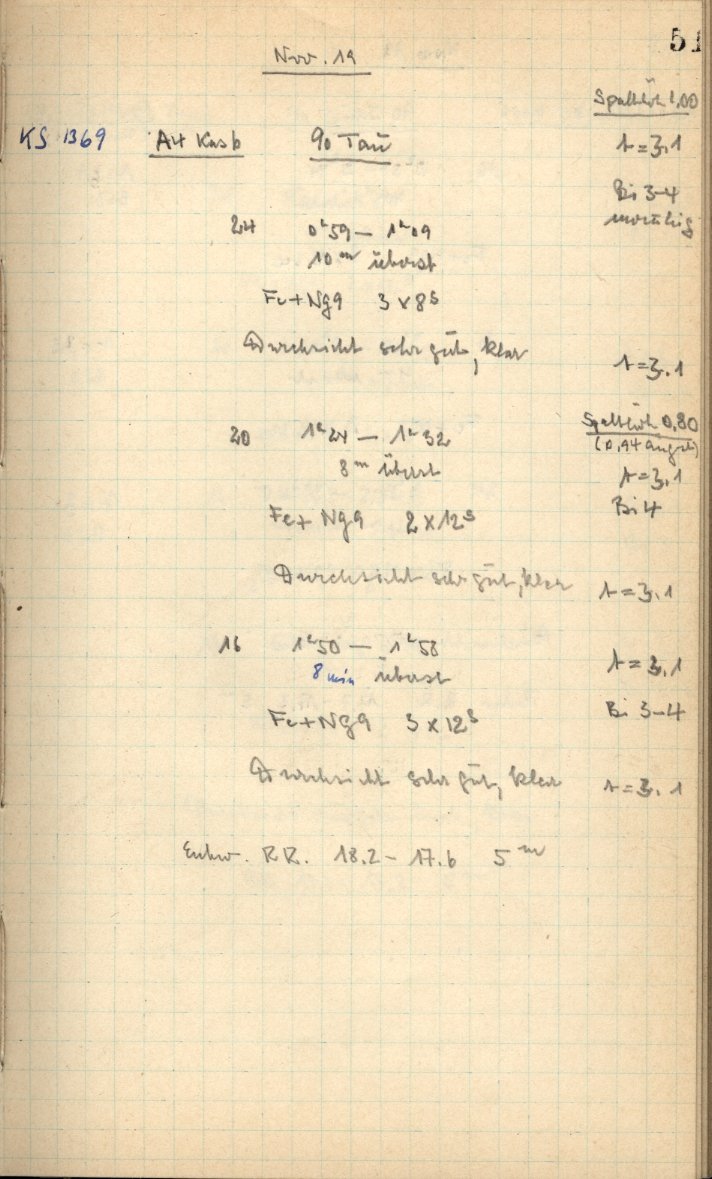 51
Nov. 19
Spalthöh 1,00
KS 1369 A4 Kasb 90 Tau t=3.1
Bi 3-4
unruhig
24 0ʰ59 — 1ʰ09
10ᵐ überst
Fe+Ng9 3 x 8ˢ
Durchsicht sehr gut, klar
t=3.1
Spalthöh 0,80
(0,94 angeb)
20 1ʰ24 — 1ʰ32
8ᵐ überst
t=3.1
Bi 4
Fe+Ng9 2 x 12ˢ
Durchsicht sehr gut, klar t=3.1
16 1ʰ50 — 1ʰ58 t=3.1
8 min überst
Fe+Ng9 3 x 12ˢ Bi 3-4
Durchsicht sehr gut, klar t=3.1
Entw. RR. 18.2 - 17.6 5ᵐ